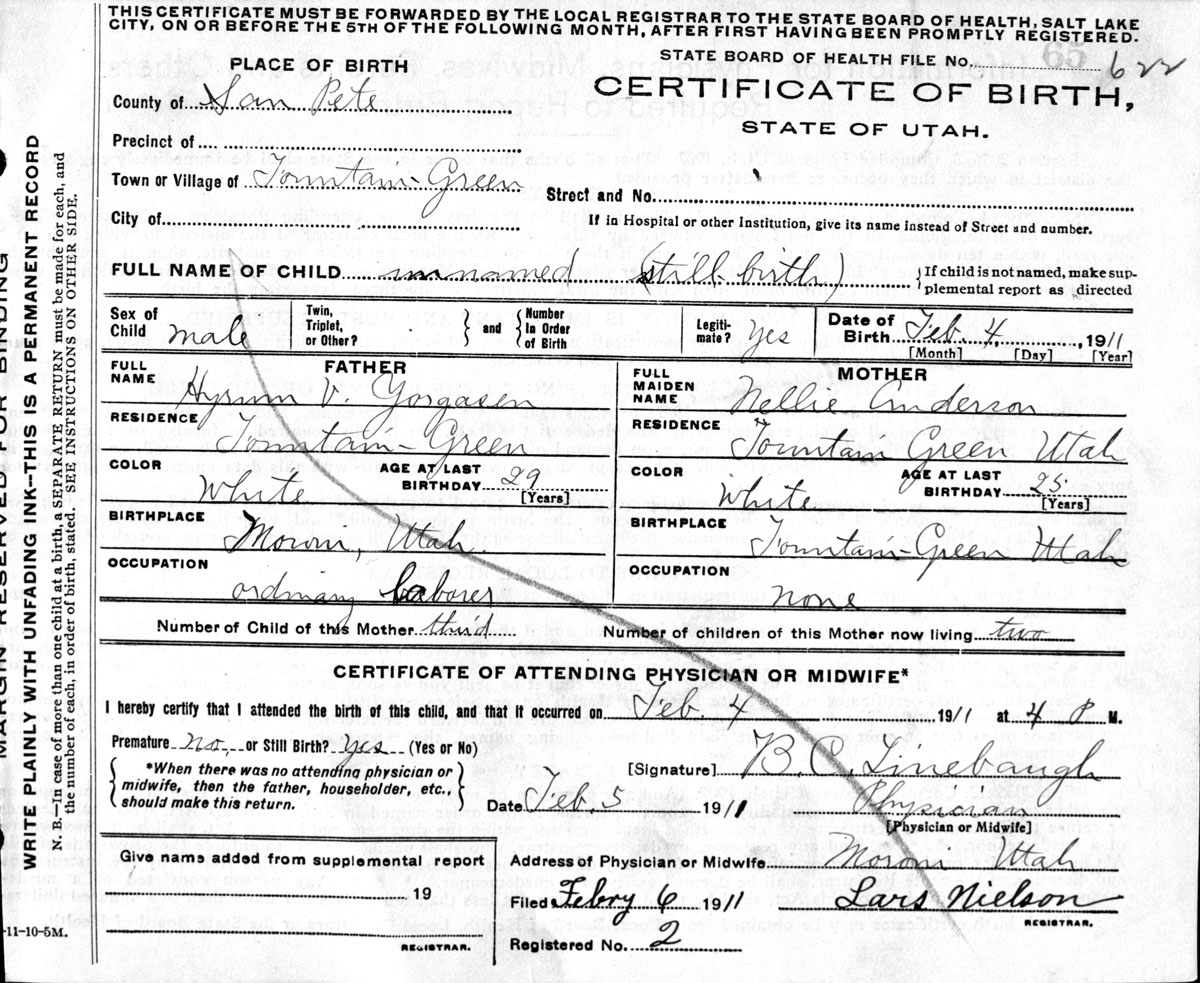 THIS CERTIFICATE MUST BE FORWARDED BY THE LOCAL REGISTRAR TO THE STATE BOARD OF HEALTH, SALT LAKE
CITY, ON OR BEFORE THE 5TH OF THE FOLLOWING MONTH, AFTER FIRST HAVING BEEN PROMPTLY REGISTERED.
STATE BOARD OF HEALTH FILE No. 622
65
PLACE OF BIRTH
CERTIFICATE OF BIRTH,
STATE OF UTAH.
County of San Pete
Precinct of
Town or Village of Fountain-Green
Street and No.
City of
If in Hospital or other Institution, give its name instead of Street and number.
FULL NAME OF CHILD unnamed (still-birth)
If child is not named, make sup-
plemental report as directed
Sex of Child male
Twin, Triplet, or Other? and Number in Order of Birth
Legiti-mate? yes
Date of Birth Feb. 4 1911
[Month] [Day] [Year]
FATHER
FULL NAME Hyrum V. Yorgasen
RESIDENCE Fountain-Green
COLOR White AGE AT LAST BIRTHDAY 29 [Years]
BIRTHPLACE Moroni, Utah.
OCCUPATION ordinary laborer
MOTHER
FULL MAIDEN NAME Nellie Anderson
RESIDENCE Fountain Green Utah
COLOR White AGE AT LAST BIRTHDAY 25 [Years]
BIRTHPLACE Fountain-Green Utah
OCCUPATION none
Number of Child of this Mother third Number of children of this Mother now living two
CERTIFICATE OF ATTENDING PHYSICIAN OR MIDWIFE*
I hereby certify that I attended the birth of this child, and that it occurred on Feb. 4 1911 at 4 P M.
Premature No, or Still Birth? yes (Yes or No)
*When there was no attending physician or
midwife, then the father, householder, etc.,
should make this return.
[Signature] B. C. Linebaugh
Date Feb. 5 1911 Physician
[Physician or Midwife]
Give name added from supplemental report
19
REGISTRAR.
Address of Physician or Midwife Moroni Utah
Filed Febry 6 1911 Lars Nielson
REGISTRAR.
Registered No. 2
-11-10-5M.
MARGIN RESERVED FOR BINDING
WRITE PLAINLY WITH UNFADING INK--THIS IS A PERMANENT RECORD
N. B.--In case of more than one child at a birth, a SEPARATE RETURN must be made for each, and
the number of each, in order of birth, stated. SEE INSTRUCTIONS ON OTHER SIDE.